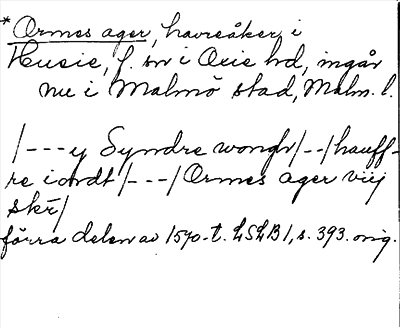 * Ormes ager, havreåker i
Husie, f. sn i Oxie hd, ingår
nu i Malmö stad, Malm. l.
/---y Syndre wongh/--/hauff-
re iordt/---/Ormes ager viij
skr/
förra delen av 1570-t. LSLB1, s. 393. orig.